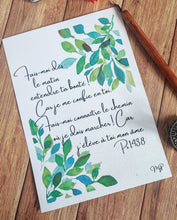 Fais-moi dès
le matin
entendre ta bonté !
Car je me confie en toi.
Fais-moi connaître le chemin
où je dois marcher ! Car
j'élève à toi mon âme
Ps.143.8